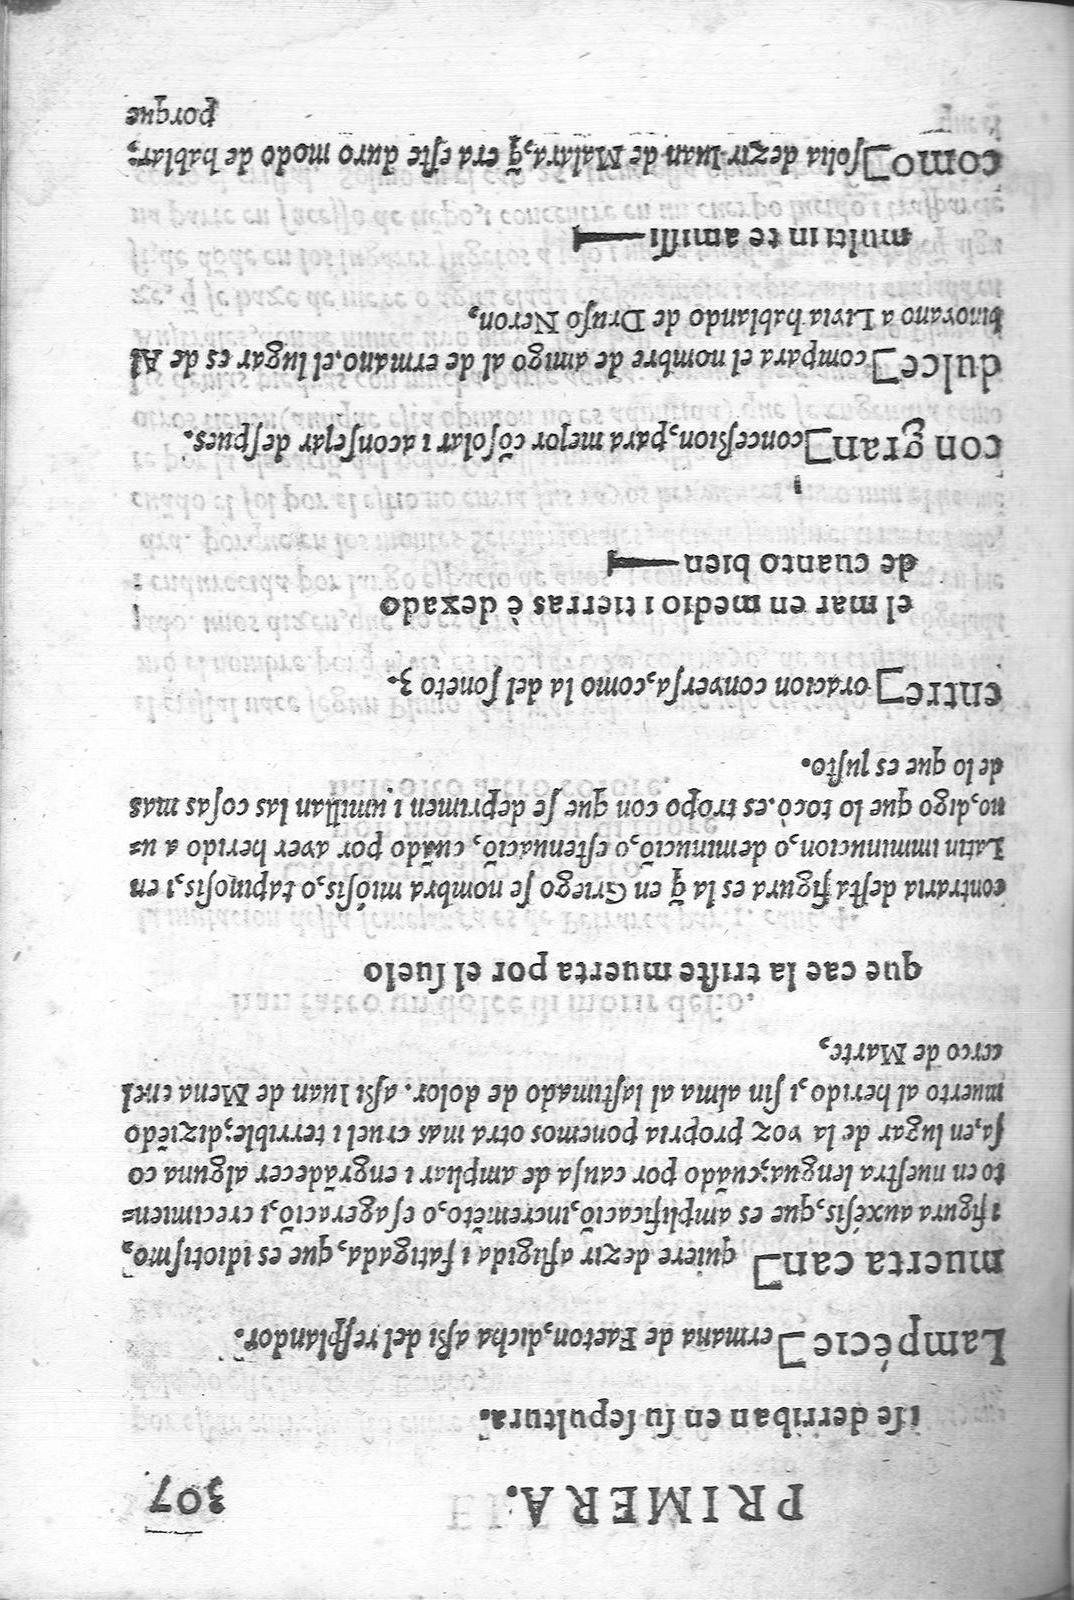 PRIMERA. 307
i se derriban en su sepultura.
Lampécie] ermana de Faeton, dicha assi del resplandor.
muerta can] quiere dezir afligida i fatigada, que es idiotismo,
i figura auxésis, que es amplificaciō, incremēto, o esageraciō, i crecimien=
to en nuestra lengua; cuādo por causa de ampliar i engrādecer alguna co
sa, en lugar de la voz propria ponemos otra mas cruel i terrible; diziēdo
muerto al herido, i sin alma al lastimado de dolor. assi Iuan de Mena en el
cerco de Marte,
que cae la triste muerta por el suelo
contraria desta figura es la q̄ en Griego se nombra miósis, o tapinosis, i en
Latin imminucion, o deminuciō, o estenuaciō, cuādo por aver herido a u=
no, digo que lo tocò. es tropo con que se deprimen i umillan las cosas mas
de lo que es justo.
entre] oracion conversa, como la del soneto 3.
el mar en medio i tierras è dexado
de cuanto bien
con gran] concession, para mejor cōsolar i aconsejar despues.
dulce] compara el nombre de amigo al de ermano. el lugar es de Al
binovano a Livia hablando de Druso Neron,
multi in te amissi
como] solia dezir Iuan de Malara, q̄ era este duro modo de hablar;
porque